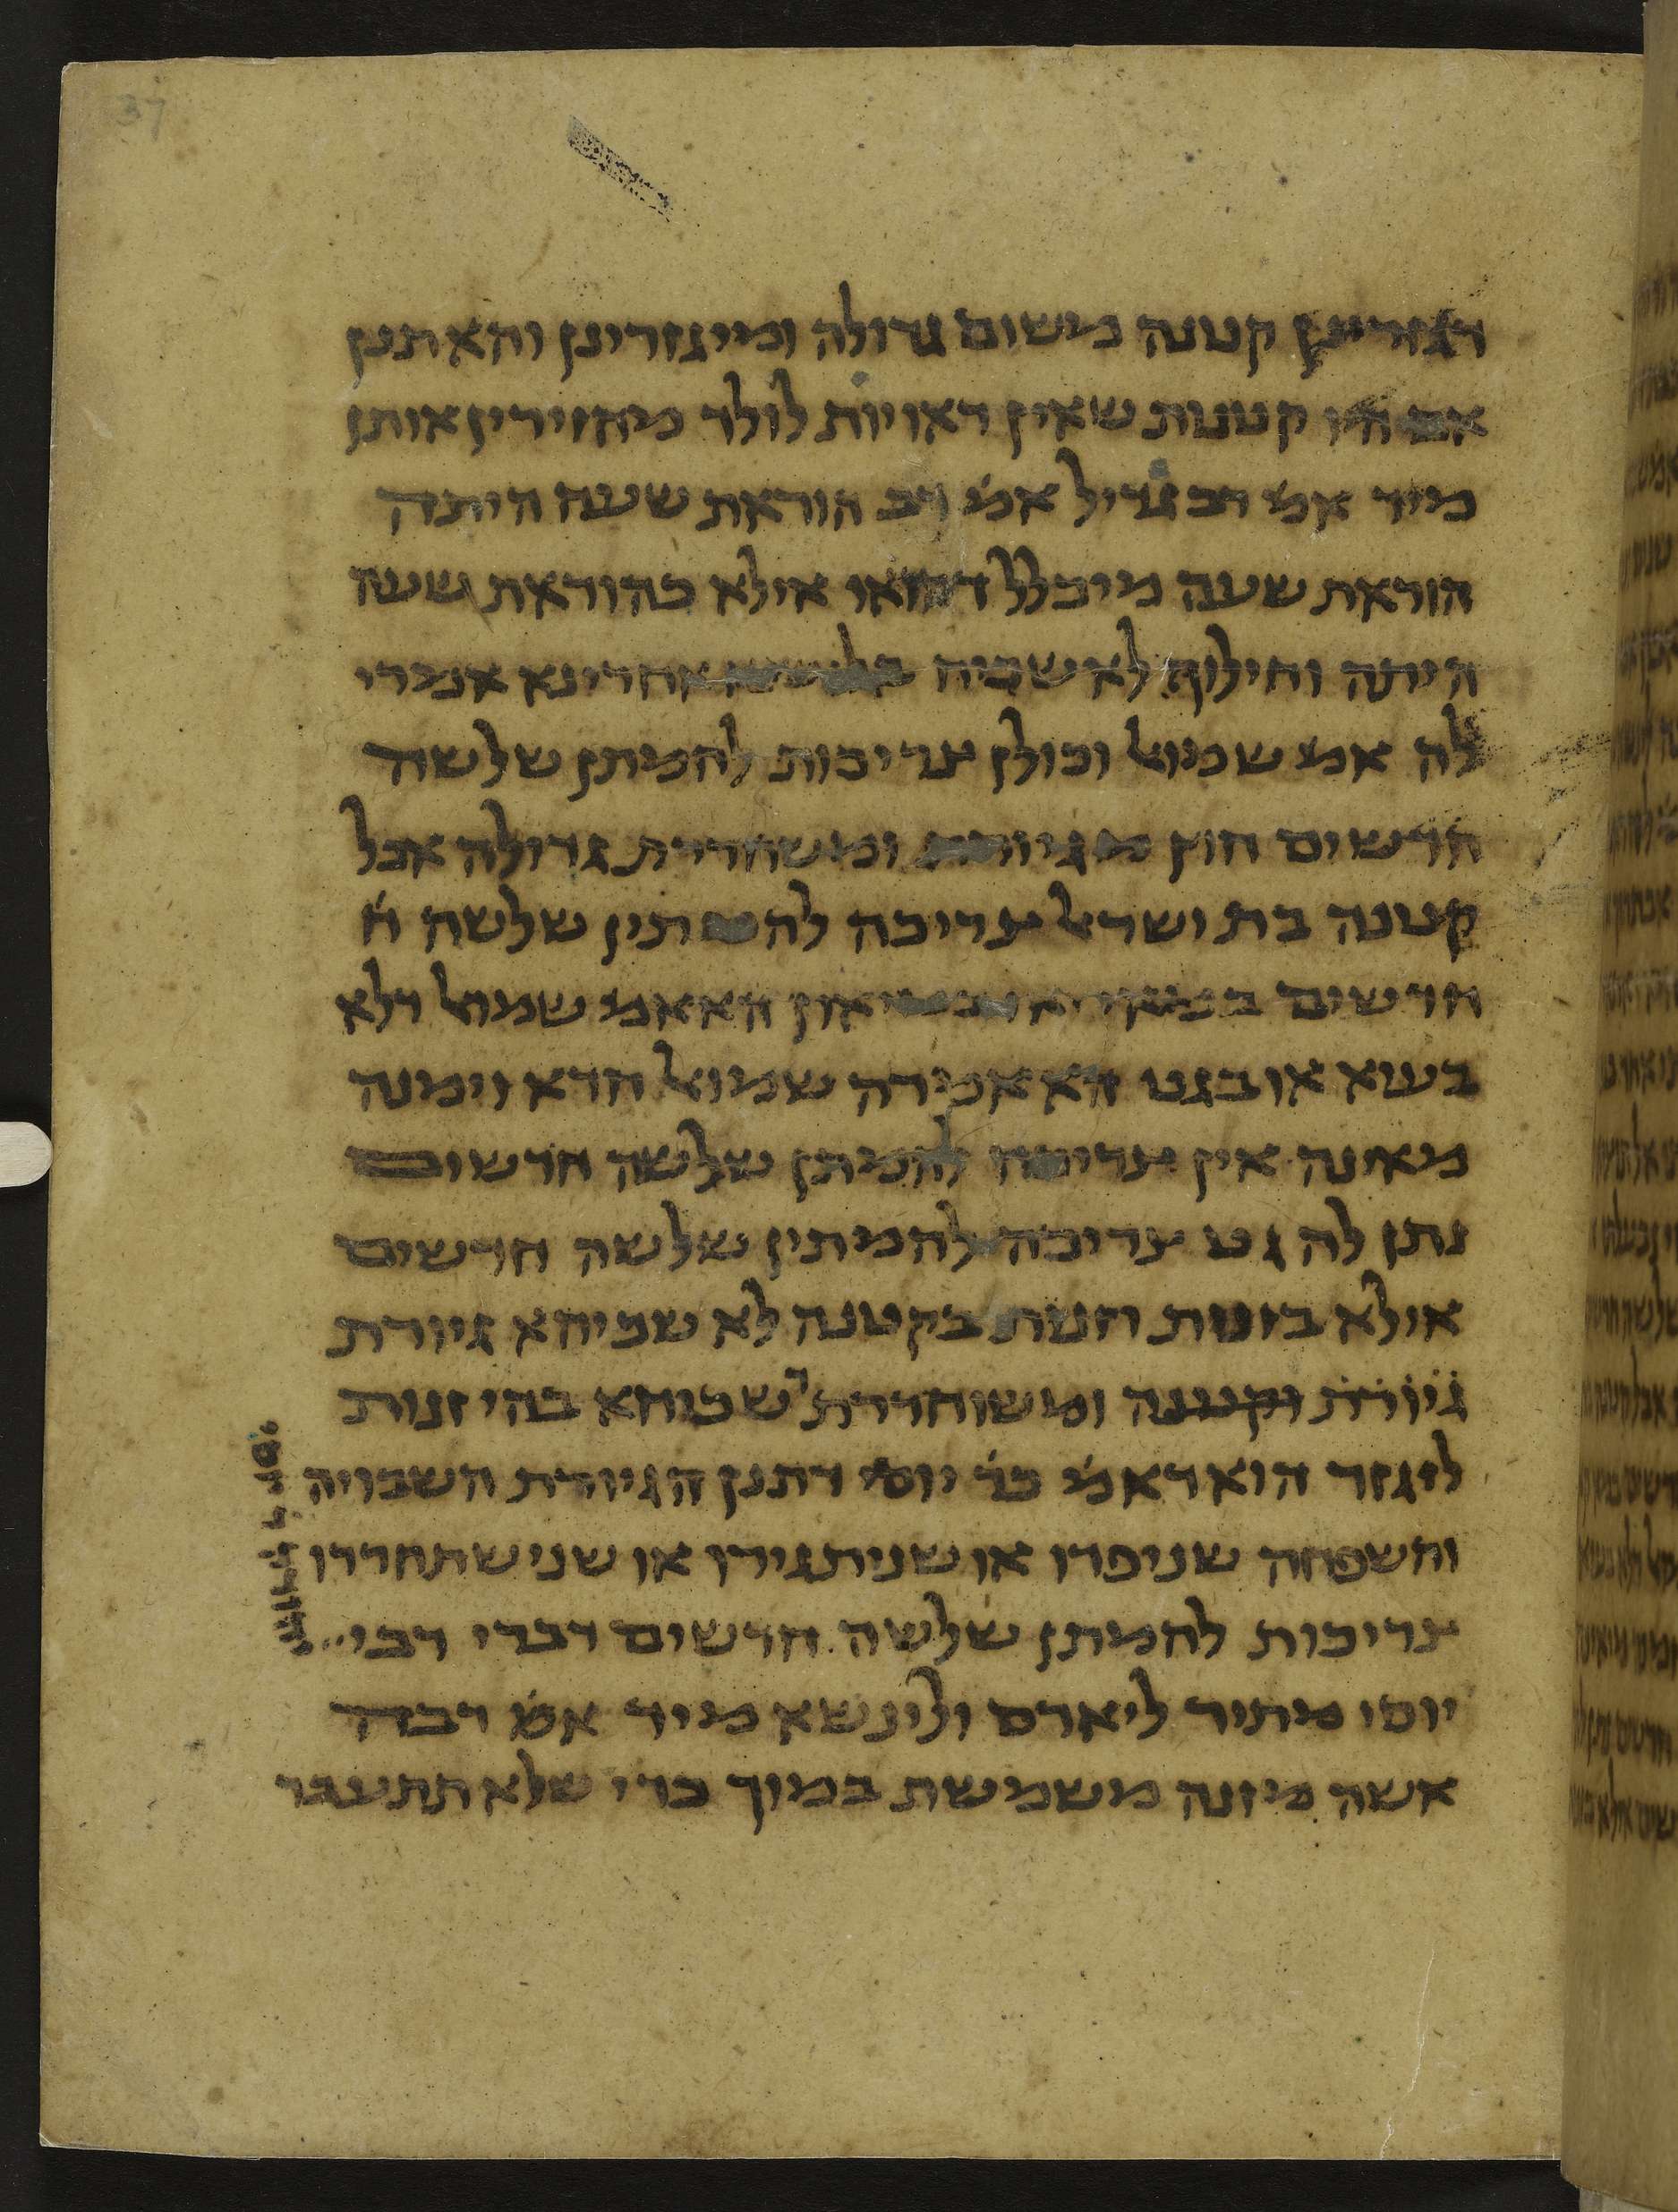 דגזרינן קטנה משום גדולה ומיגזרינן והאתנן
אם היו קטנות שאין ראויות לולד מחזירין אותן
מיד אמ׳ רב גדיל אמ׳ רב הוראת שעה היתה
הוראת שעה מיכלל דהואי אילא כהוראת שעה
היתה וחילוף לא שכיח אחרינא אמרי
לה אמ׳ שמואל וכולן צריכות להמתן שלשה
חדשים חוץ מגיורת ומשחררת גדולה אבל
קטנה בת ישראל צריכה להמתין שלשה ח׳
חדשים האאמ׳ שמואל דלא
בעיא או בגט הא אמרה שמואל חדא זימנה
מאינה אין צריכה להמתן שלשה חדשים
נתן לה גט צריכה להמתין שלשה חדשים
אילא בזנות וזנות בקטנה לא שכיחא גיורת
גיורת וקטנה ומשוחררת דשכיחא בהי זנות
ליגזר הוא דאמ׳ כר׳ יוסי דתנן הגיורת השבויה
והשפחה שניפדו או שניתגירו או שנישתחררו
צריכות להמתן שלשה חדשים דברי רבי
יוסי מתיר ליארס ולינשא מיד אמ׳ רבה
אשה מזנה משמשת במוך כדי שלא תתעבר
37